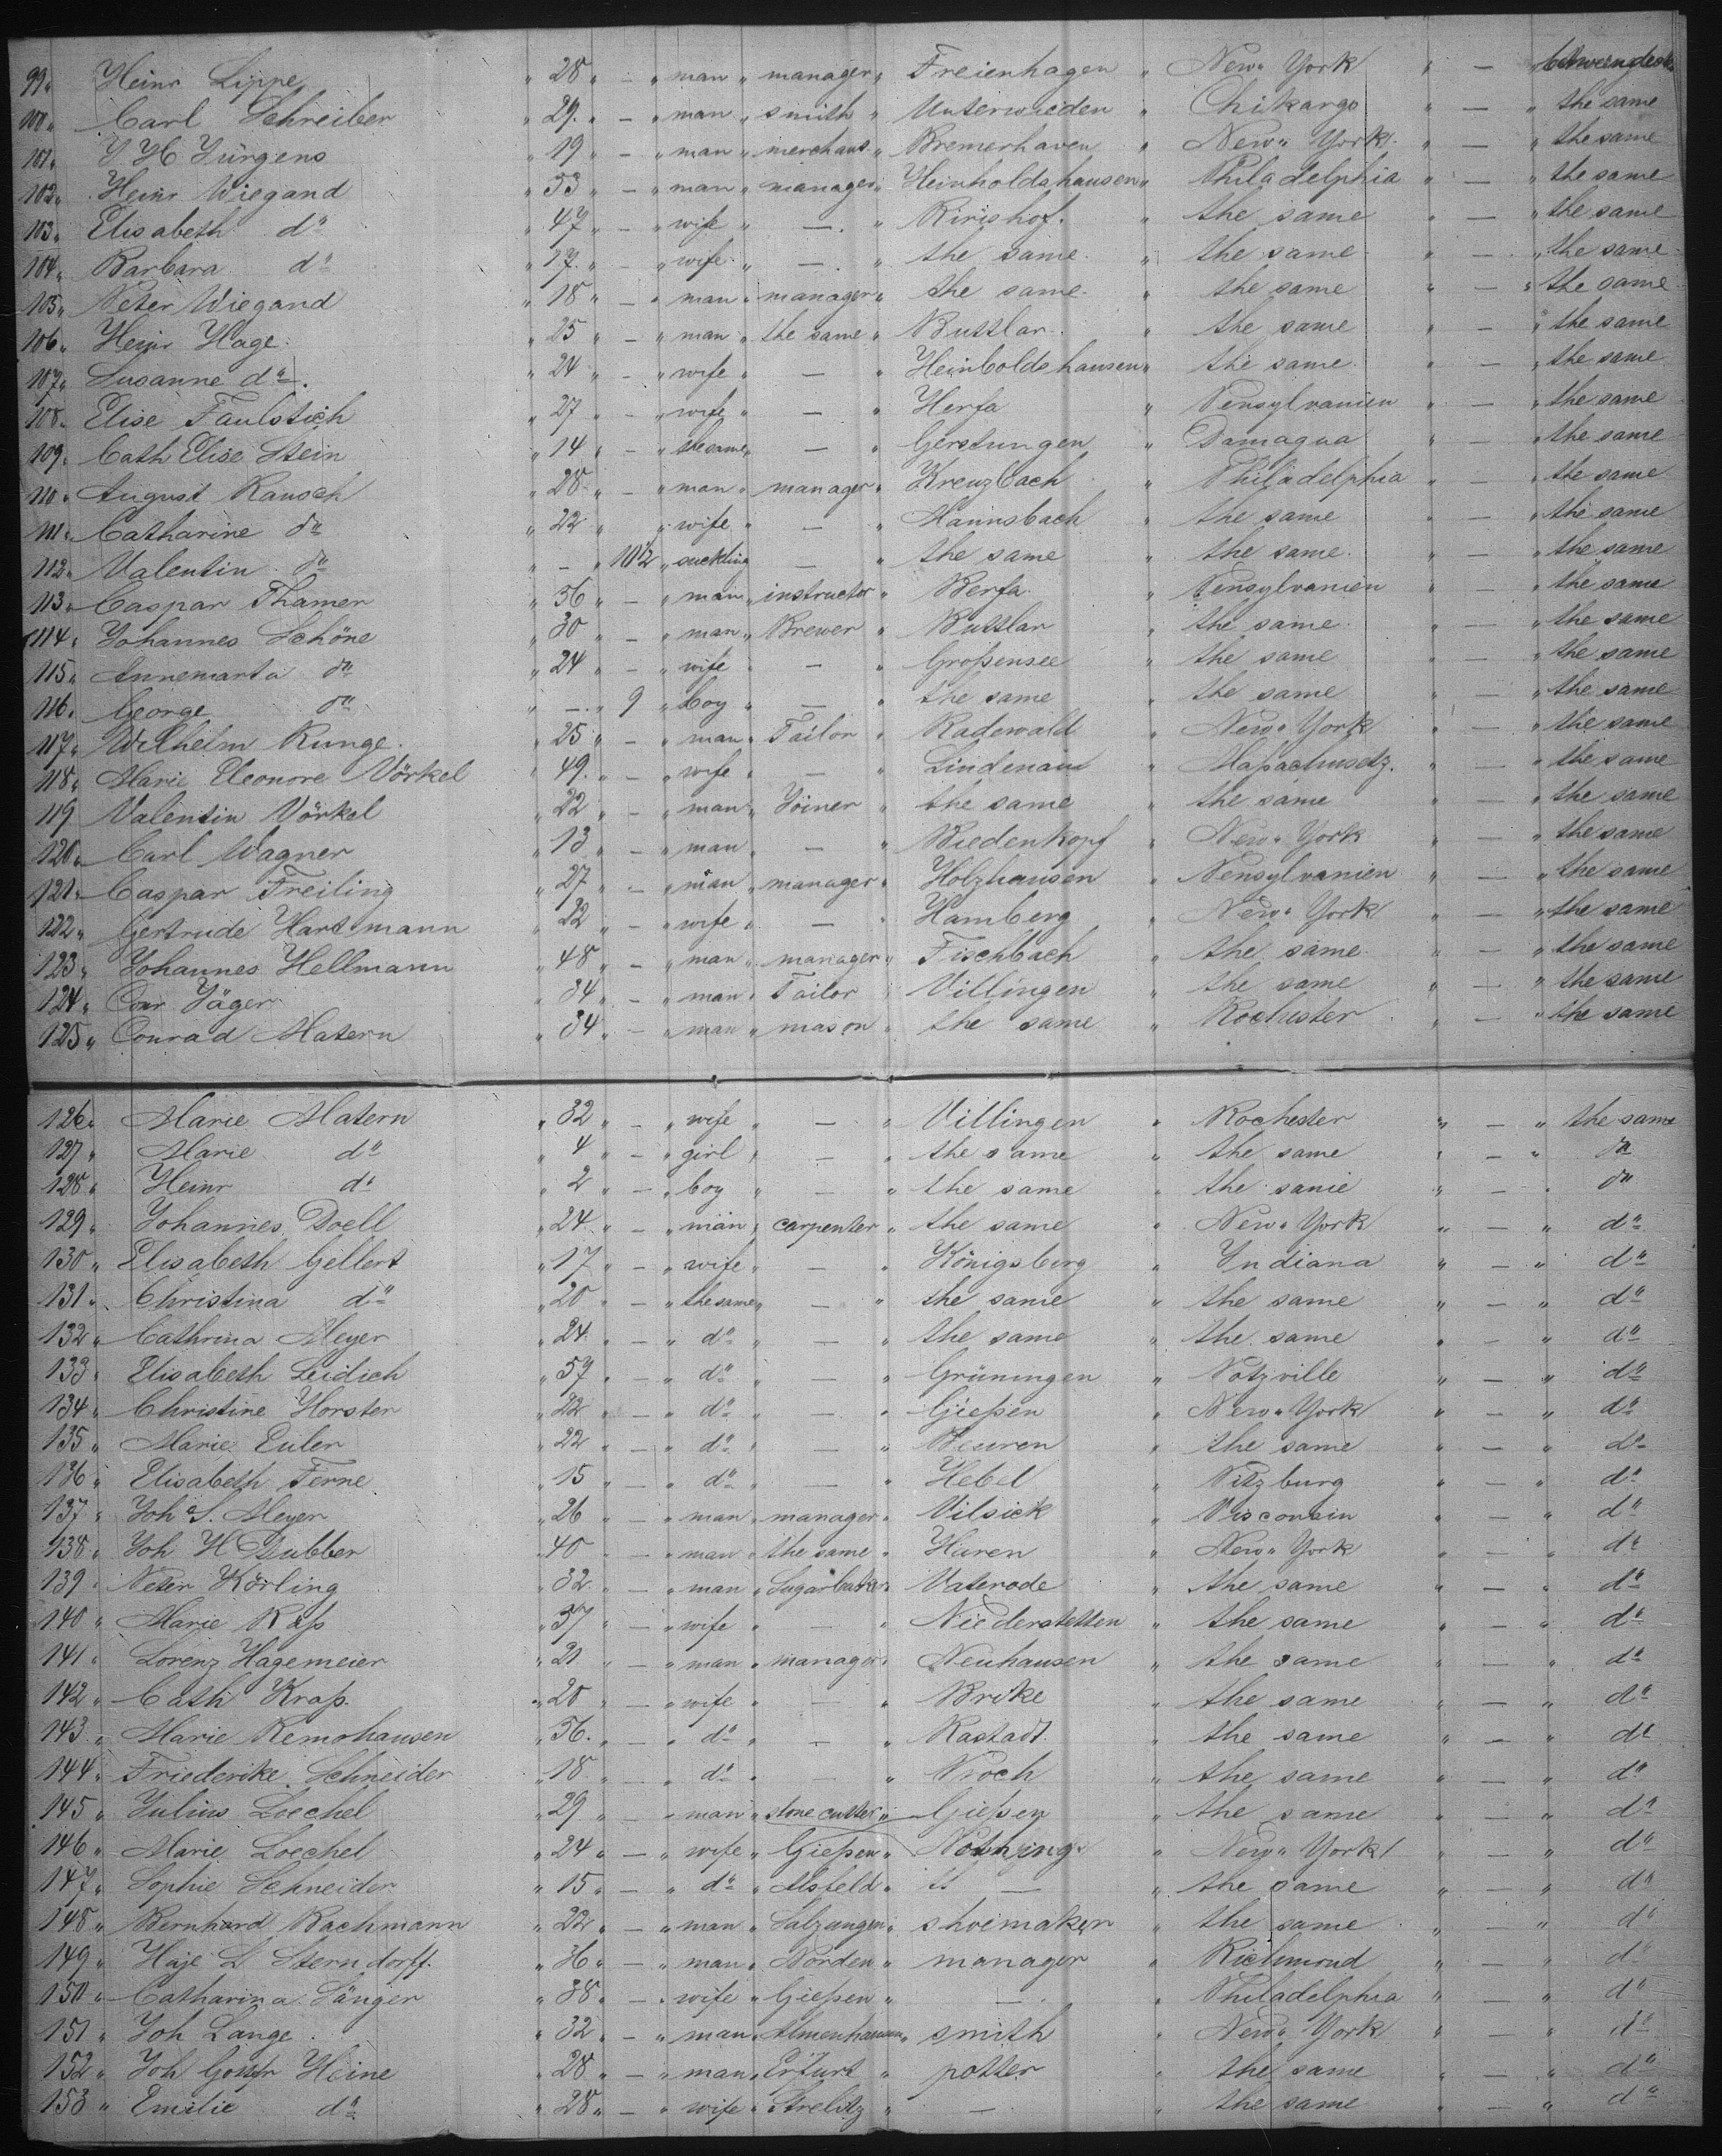 99 " Heinr Lippe " 28 " — " man " manager " Freienhagen " New " York " — "
100 " Carl Schreiber " 29. " — " man " smith " Unterwieden " Chikargo " — " the same
101 " J H Jürgens " 19 " — " man " merchant " Bremerhaven " New " York. " — " the same
102 " Heinr Wiegand " 53 " — " man " manager " Heinholdshausen " Philadelphia " — " the same
103 " Elisabeth do " 47 " — " wife " — " Ririshof. " the same " — " the same
104 " Barbara do " 17. " — " wife " — " the same " the same " — " the same
105 " Peter Wiegand " 18 " — " man " manager " the same " the same " — " the same
106 " Heinr Hage " 25 " — " man " the same " Buttlar " the same " — " the same
107 " Susanne do " 24 " — " wife " — " Heinboldshausen " the same " — " the same
108 " Elise Faulstich " 27 " — " wife " — " Herfa " Pensylvanien " — " the same
109 " Cath Elise Stein " 14 " — " the same " — " Gerstungen " Damaqua " — " the same
110 " August Rausch " 28 " — " man " manager " Kreuzbach " Philadelphia " — " the same
111 " Catharine do " 22 " " wife " — " Mannsbach " the same " — " the same
112 " Valentin do " — " 10 1/2 " suckling — " the same " the same " — " the same
113 " Caspar Thamer " 56 " — " man " instructor " Berfa " Pensylvanien " — " the same
114 " Johannes Schöne " 30 " — " man " Brewer " Buttlar " the same " — " the same
115 " Annemarta do " 24 " — " wife " — " Großensee " the same " — " the same
116 " George do " — " 9 " boy " — " the same " the same " — " the same
117 " Wilhelm Runge " 25 " — " man " Tailor " Radewald " New " York " — " the same
118 " Marie Eleonore Vörkel " 49. " — " wife " — " Lindenau " Maßachusetz. " — " the same
119 Valentin Vörkel " 22 " — " man " Joiner " the same " the same " — " the same
120 " Carl Wagner " 13 " — " man " — " Biedenkopf " New " York " — " the same
121 " Caspar Freiling " 27 " — " man " manager " Holzhausen " Pensylvanien " — " the same
122 " Gertrude Hartmann " 22 " — " wife " — " Hamberg " New " York " — " the same
123 " Johannes Hellmann " 48 " — " man " manager " Fischbach " the same " — " the same
124 " Conr Jäger " 34 " — " man " Tailor " Villingen " the same " — " the same
125 " Conrad Matern " 34 " — " man " mason " the same " Rochester " — " the same
126 " Marie Matern " 32 " — " wife " — " Villingen " Rochester " — " the same
127 " Marie do " 4 " — " girl " — " the same " the same " — " do
128 " Heinr do " 2 " — " boy " — " the same " the same " — " do
129 " Johannes Doell " 24. " — " man " carpenter " the same " New " York " — " do
130 " Elisabeth Gellert " 17 " — " wife " — " Königsberg " Indiana " — " do
131 " Christina do " 20 " — " the same " — " the same " the same " — " do
132 " Cathrina Meyer " 24. " — " do " — " the same " the same " — " do
133 " Elisabeth Leidich " 57 " — " do " — " Grüningen " Potzville " — " do
134 " Christine Horster " 22 " — " do " — " Gießen " New " York " — " do
135 " Marie Euler " 22 " — " do " — " Beuren " the same " — " do
136 " Elisabeth Ferne " 15 " — " do " — " Hebel " Pitzburg " — " do
137 " Joh S. Meyer " 26 " — " man " manager " Vilsick " Visconsin " — " do
138 " Joh H Dubber " 40 " — " man " the same " Haren " New " York " — " do
139 " Peter Körling " 32. " — " man " Sugarbaker " Vaterode " the same " — " do
140 " Marie Raß " 37 " — " wife " — " Niederstetten " the same " — " do
141 " Lorenz Hagemeier " 21 " — " man " manager " Neuhausen " the same " — " do
142 " Cath Kraß " 20 " — " wife " — " Brike " the same " — " do
143 " Marie Remohausen " 56. " — " do " — " Rastadt " the same " — " do
144 " Friederike Schneider " 18 " — " do " — " Proch " the same " — " do
145 " Julius Loechel " 29 " — " man " stone cutter " Gießen " the same " — " do
146 " Marie Loechel " 24 " — " wife " Gießen " Nothing " New " York " — " do
147 " Sophie Schneider " 15 " — " do " Alsfeld " — " the same " — " do
148 " Bernhard Bachmann " 22 " — " man " Salzungen " shoemaker " the same " — " do
149 " Haje L Sterndorff. " 36 " — " man " Norden " manager " Richmond " — " do
150 " Catharina Sänger " 38 " — " wife " Gießen " — " Philadelphia " — " do
151 " Joh Lange " 32 " — " man " Almenhausen " smith " New " York " — " do
152 " Joh Gottfr Heine " 28 " — " man " Erfurt " potter " the same " — " do
153 " Emilie do " 28 " — " wife " Strelitz " — " the same " — " do